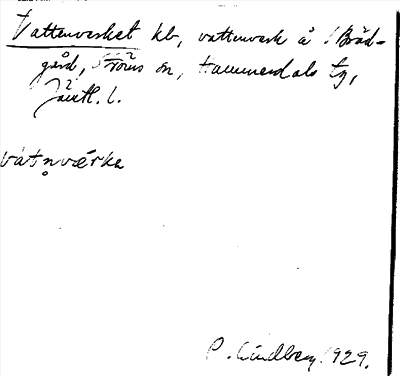 Vattenverket kb, vattenverk å Bräd-
gård, Ströms sn, Hammerdals tg,
Jämtl. l.
vatn̥værke
P. Lindberg 1929.